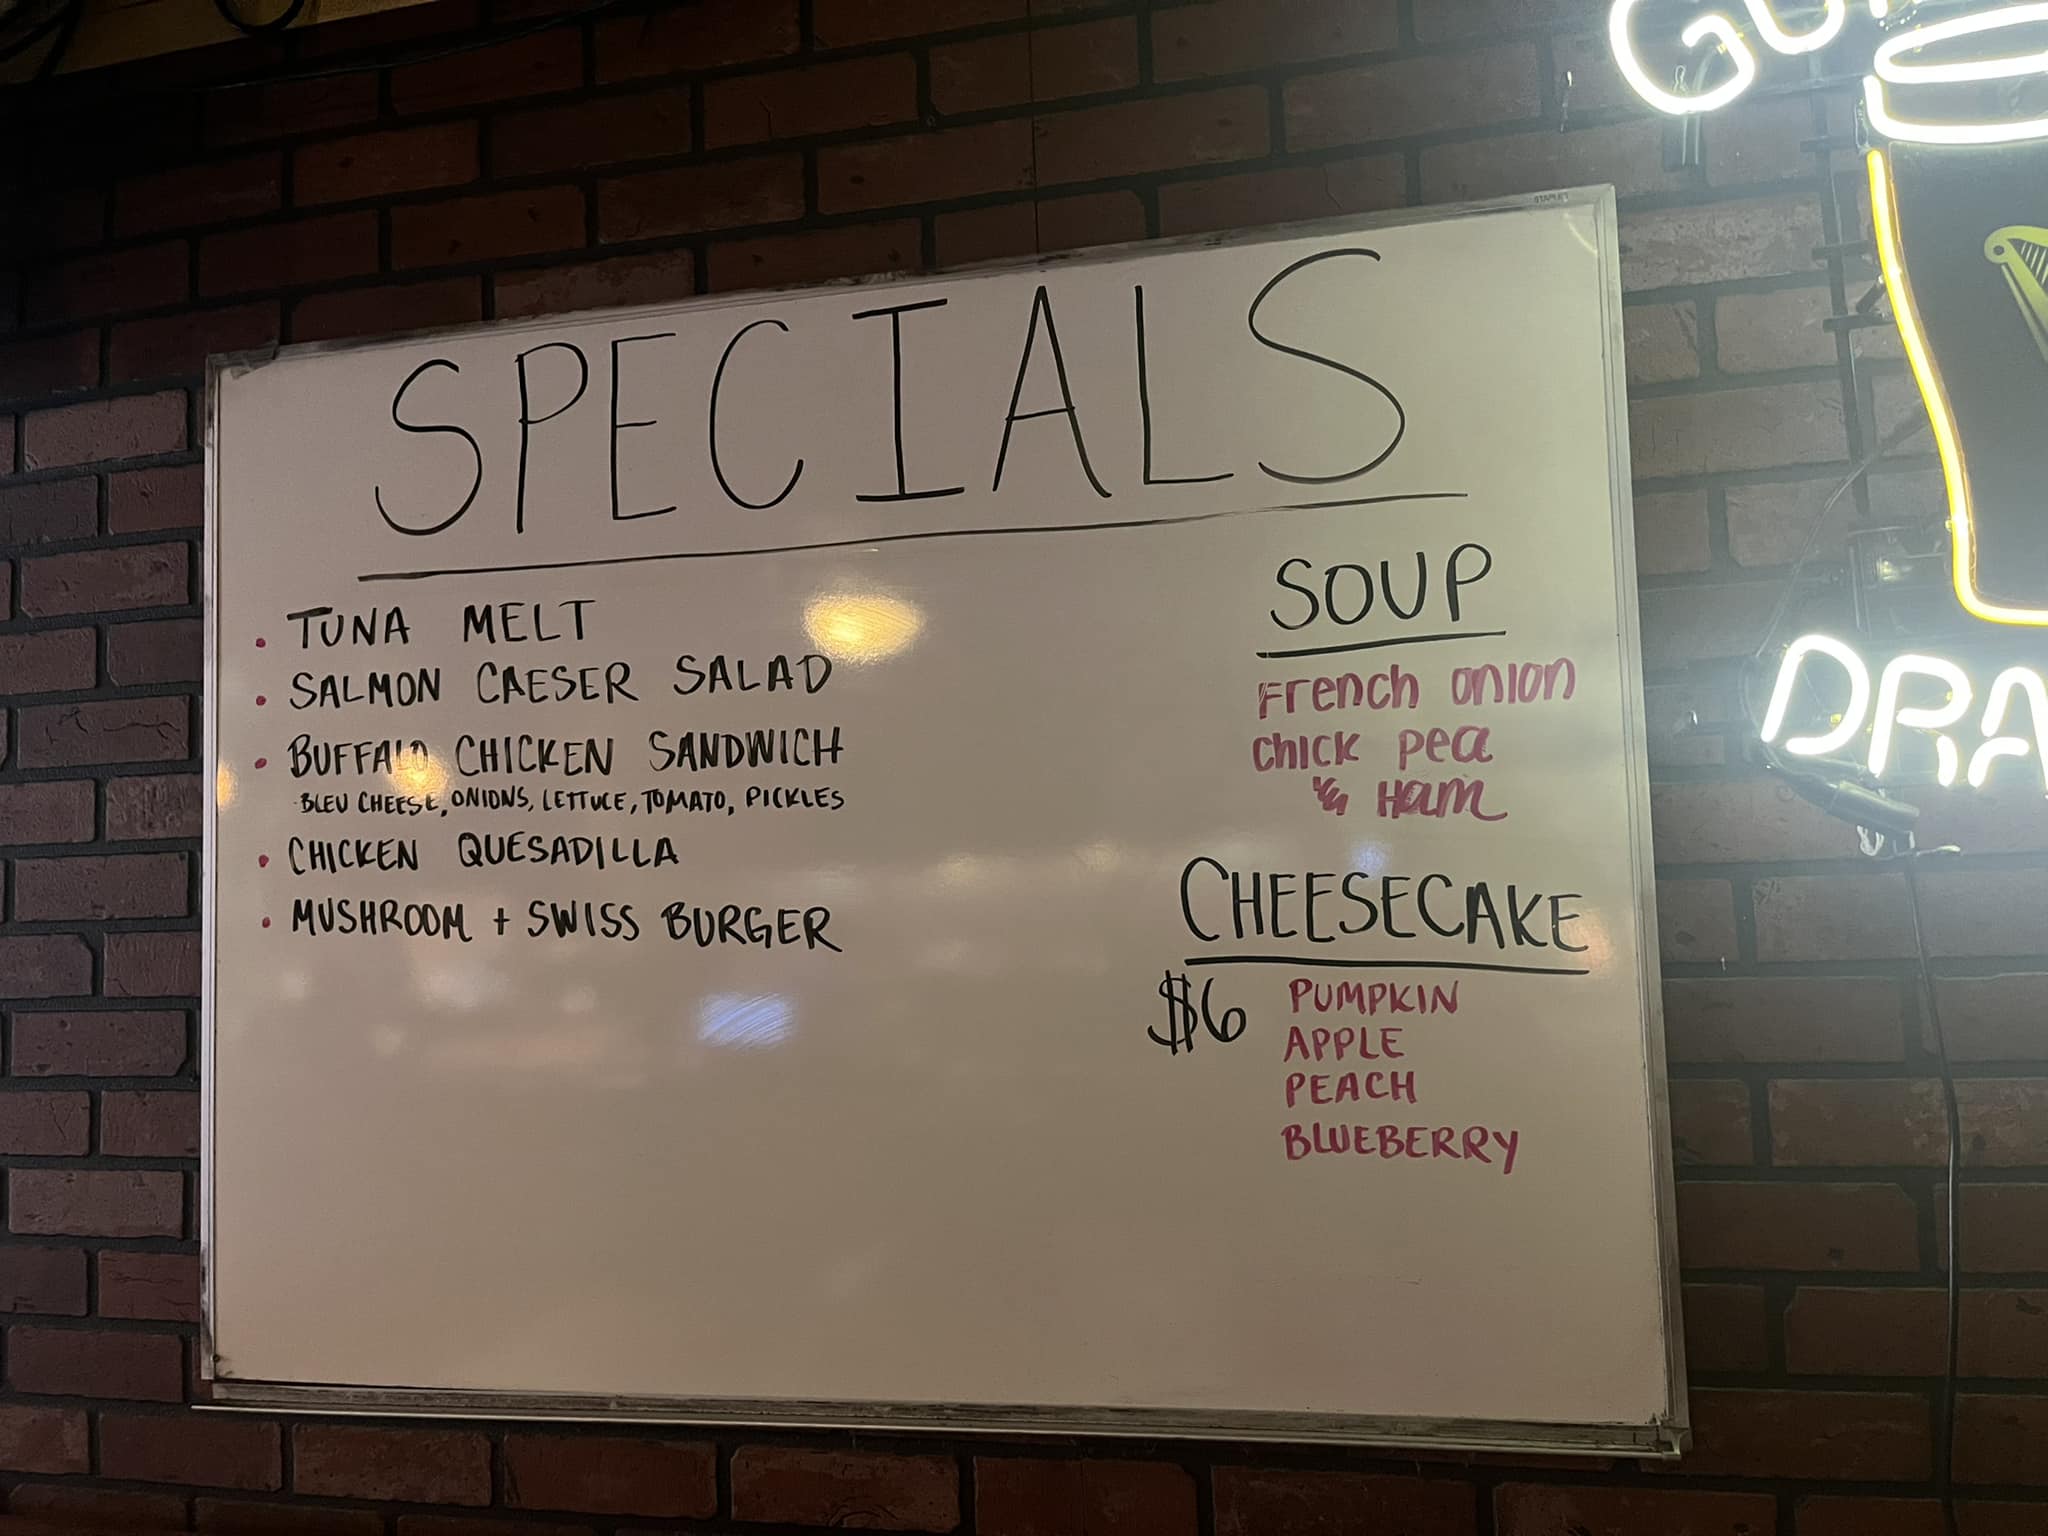 SPECIALS
• TUNA MELT
• SALMON CAESER SALAD
• BUFFALO CHICKEN SANDWICH
- BLEU CHEESE, ONIONS, LETTUCE, TOMATO, PICKLES
• CHICKEN QUESADILLA
• MUSHROOM + SWISS BURGER
SOUP
French onion
Chick pea
& Ham
CHEESECAKE
$6 PUMPKIN
APPLE
PEACH
BLUEBERRY
GU
DRA
STAPLES